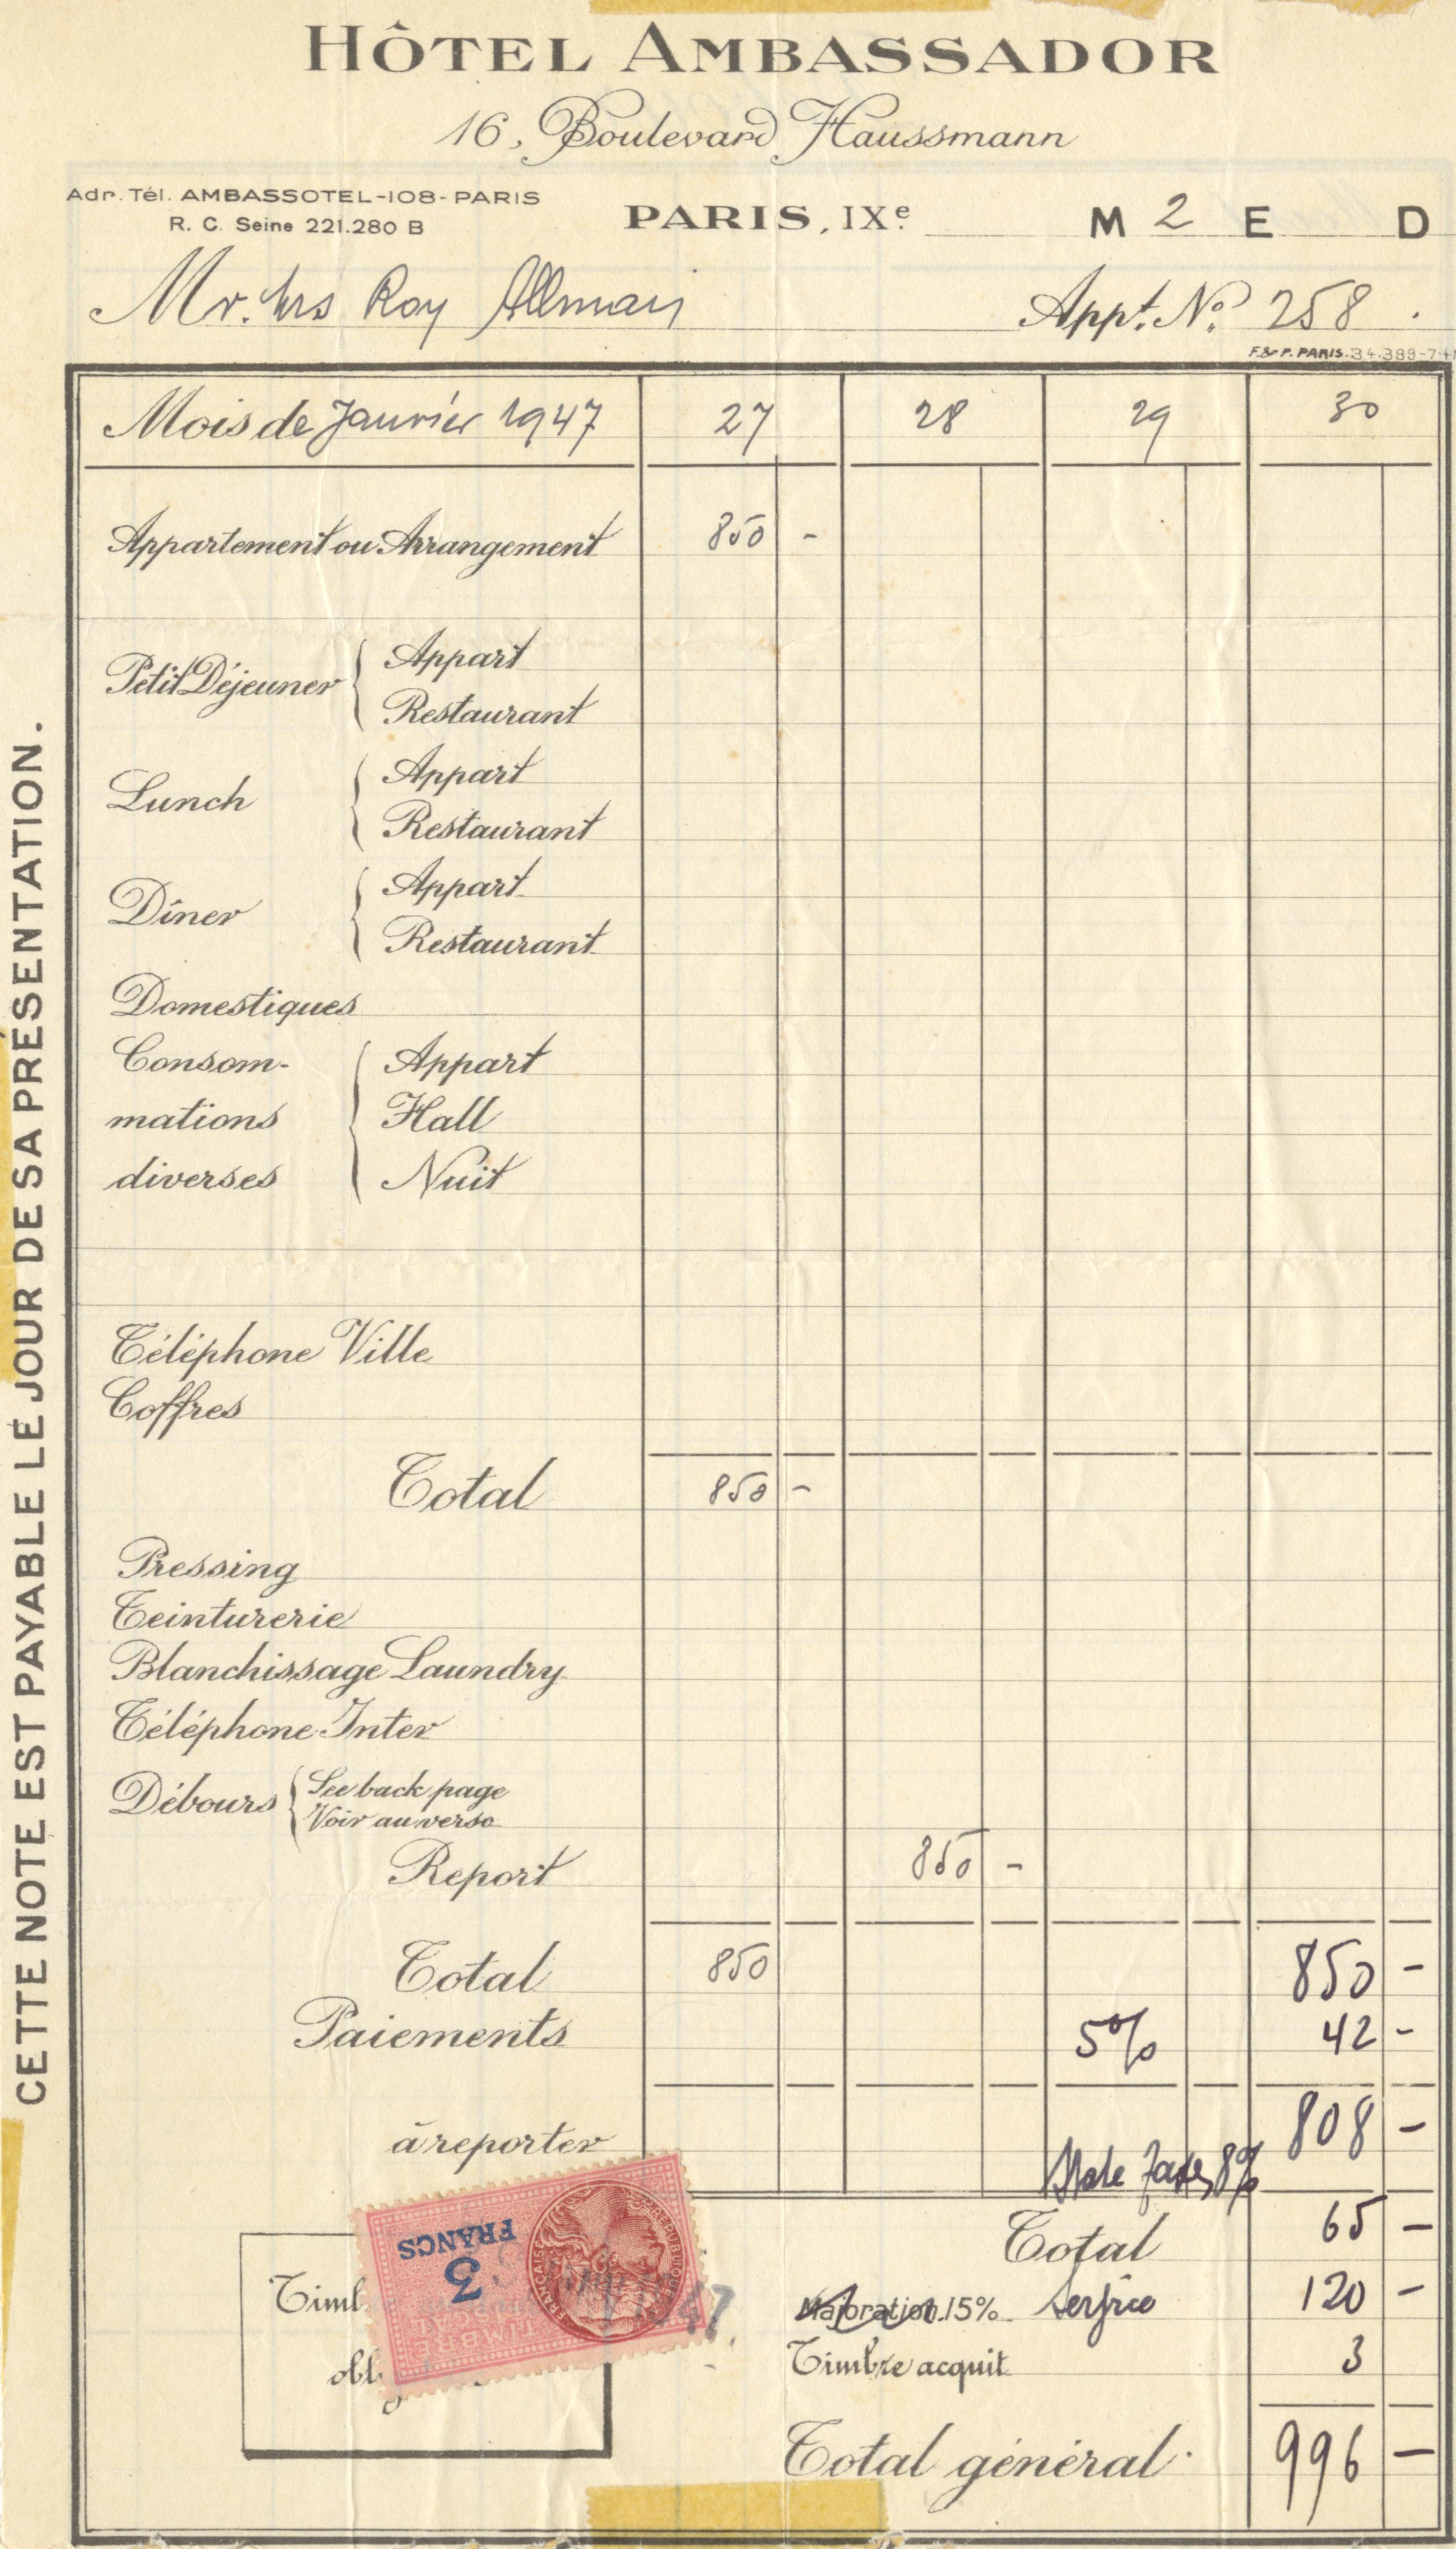 HÔTEL AMBASSADOR
16, Boulevard Haussmann
Adr. Tél. AMBASSOTEL-108-PARIS
R. C. Seine 221.280 B
PARIS, IXe M 2 E D
Mr. Mrs Roy Allman
Appt. No. 258
F.& P. PARIS. 34.388-7-4
Mois de Janvier 1947 27 28 29 30
Appartement ou Arrangement 850 -
Petit Déjeuner Appart
Restaurant
Lunch Appart
Restaurant
Dîner Appart
Restaurant
Domestiques
Consom- Appart
mations Hall
diverses Nuit
Téléphone Ville
Coffres
Total 850 -
Pressing
Teinturerie
Blanchissage Laundry
Téléphone Inter
Débours See back page
Voir au verso
Report 850 -
Total 850 850 -
Paiements 5% 42 -
à reporter 808 -
8%
Total 65 -
Majoration 15% Service 120 -
Timbre acquit 3
Total général 996 -
Timb
obl
3 FRANCS
TIMBRE
FRANÇAISE
47
CETTE NOTE EST PAYABLE LE JOUR DE SA PRÉSENTATION.